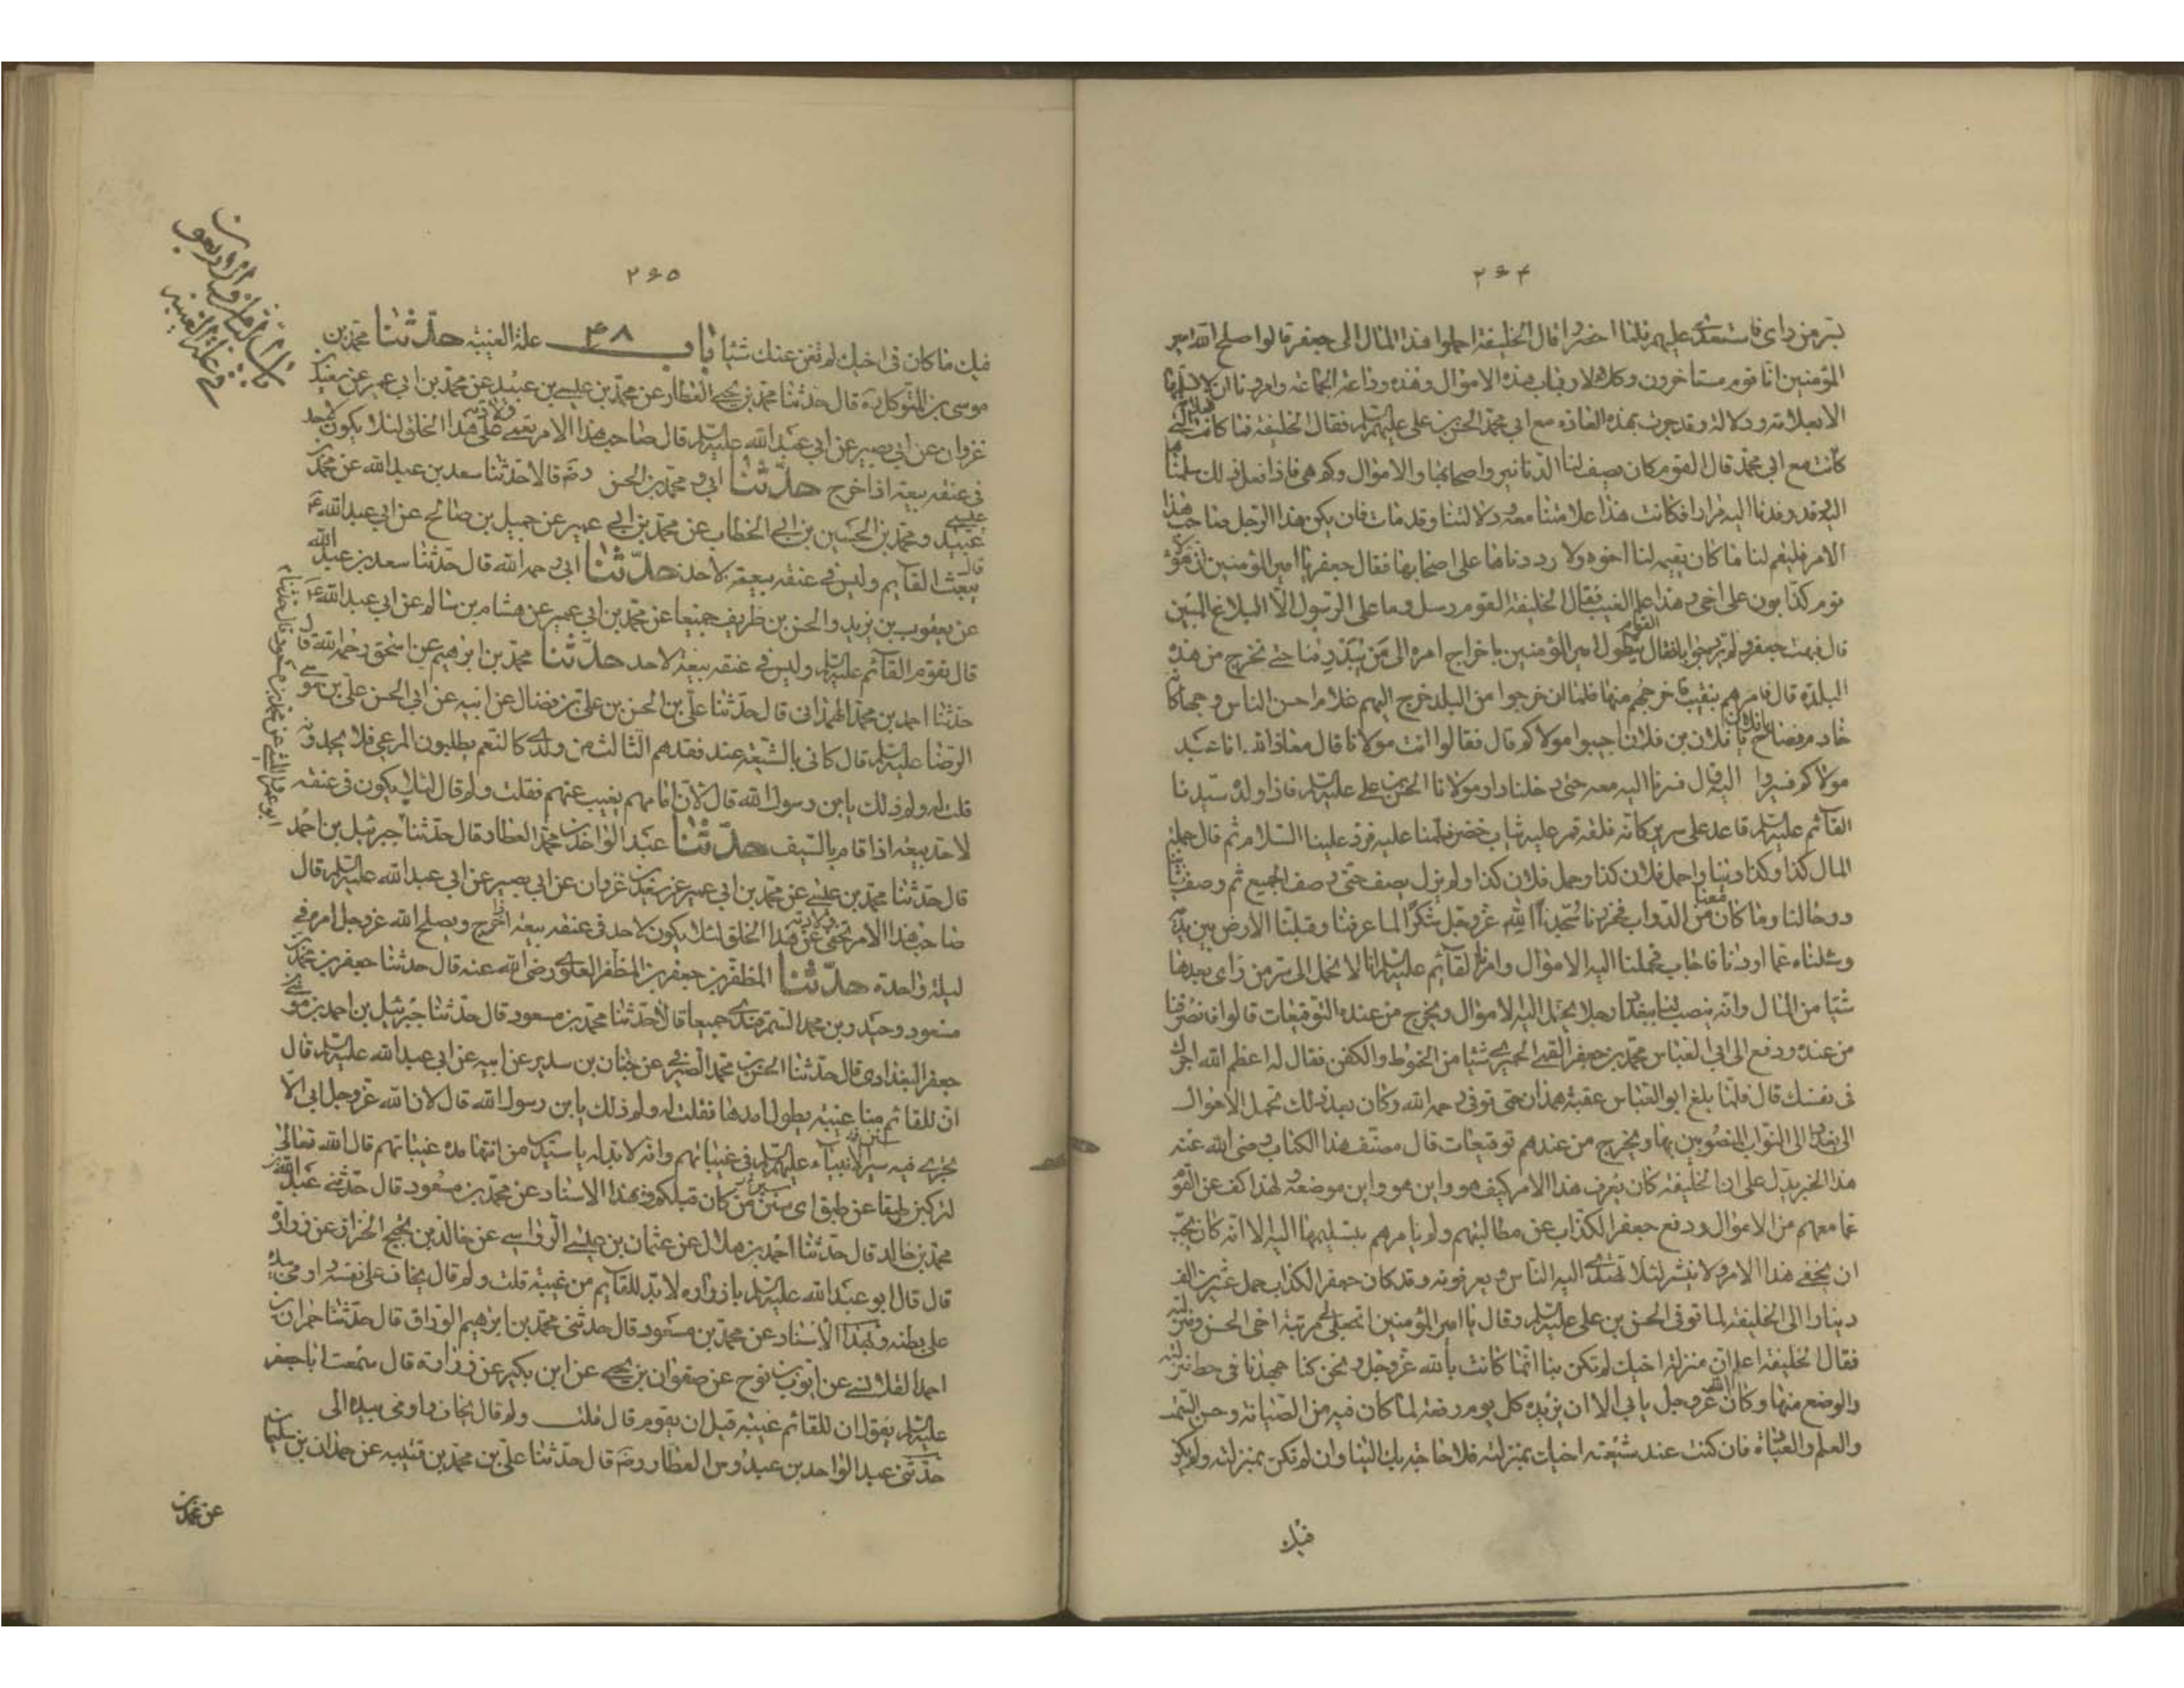 ۲۶۴
بسر من رای فاستعدی علیهم فلما احضروا قال الخلیفة احملوا هذا المال الی جعفر قالوا اصلح الله امیر
المؤمنین انا قوم مستاجرون وکلاء لارباب هذه الاموال وهذه وداعة الجماعة وامرونا ان لا نسلمها
الا بعلامة ودلالة وقد جرت بهذه العادة مع ابی محمد الحسن بن علی علیهما السلم فقال الخلیفة فما کانت العلامة التی
کانت مع ابی محمد قال القوم کان یصف لنا الدنانیر واصحابها والاموال وکم هی فاذا فعل ذلک سلمناها
الیه وقد وفدنا الیه مرارا فکانت هذا علامتنا معه ودلالتنا وقد مات فان یکن هذا الرجل صاحب هذا
الامر فلیقم لنا ما کان یقیمه لنا اخوه ولا رددناها علی اصحابها فقال جعفر یا امیر المؤمنین ان هؤلاء
قوم کذابون علی اخی وهذا علم الغیب فقال الخلیفة القوم رسل وما علی الرسول الا البلاغ المبین
قال فبهت جعفر ولم یرد جوابا فقال القوم یتطول امیر المؤمنین باخراج امره الی من یبدرقنا حتی نخرج من هذه
البلدة قال فامرهم بنقیب فاخرجهم منها فلما ان خرجوا من البلد خرج الیهم غلام احسن الناس وجها کانه
خادم فصاح یا فلان یا فلان بن فلان اجیبوا مولاکم قال فقالوا انت مولانا قال معاذ الله انا عبد
مولاکم فسیروا الیه قال فسرنا الیه معه حتی دخلنا دار مولانا الحسن بن علی علیه السلم فاذا ولده سیدنا
القآئم علیه السلم قاعد علی سریر کانه فلقة قمر علیه ثیاب خضر فسلمنا علیه فرد علینا السلام ثم قال جملة
المال کذا وکذا دینارا حمل فلان کذا وحمل فلان کذا ولم یزل یصف حتی وصف الجمیع ثم وصف ثیابنا
ورحالنا وما کان معنا من الدواب فخررنا سجدا لله عز وجل شکرا لما عرفنا وقبلنا الارض بین یدیه
وسئلناه عما اردنا فاجاب فحملنا الیه الاموال وامرنا القآئم علیه السلم ان لا نحمل الی سر من رای بعدها
شیئا من المال وانه ینصب لنا ببغداد رجلا یحمل الیه الاموال ویخرج من عنده التوقیعات قالوا فانصرفنا
من عنده ودفع الی ابی العباس محمد بن جعفر القمی الحمیری شیئا من الحنوط والکفن فقال له اعظم الله اجرک
فی نفسک قال فلما بلغ ابو العباس عقبة همذان حتی توفی رحمه الله وکان بعد ذلک تحمل الاموال
الی بغداد الی النواب المنصوبین بها ویخرج من عندهم توقیعات قال مصنف هذا الکتاب رضی الله عنه
هذا الخبر یدل علی ان الخلیفة کان یعرف هذا الامر کیف هو واین هو واین موضعه لهذا کف عن القوم
عما معهم من الاموال ودفع جعفر الکذاب عن مطالبتهم ولم یامرهم بتسلیمها الیه الا انه کان یحب
ان یخفی هذا الامر ولا ینشر لئلا یهتدی الیه الناس ویعرفونه وقد کان جعفر الکذاب حمل عشرین الف
دینارا الی الخلیفة لما توفی الحسن بن علی علیه السلم وقال یا امیر المؤمنین اتجعل لی مرتبة اخی الحسن ومنزلته
فقال الخلیفة اعلم ان منزلة اخیک لم تکن بنا انما کانت بالله عز وجل ونحن کنا نجهد فی حط منزلته
والوضع منها وکان الله عز وجل یابی الا ان یزیده کل یوم رفعة لما کان فیه من الصیانة وحسن السمت
والعلم والعبادة فان کنت عند شیعته اخیک بمنزلته فلا حاجة بک الینا وان لم تکن بمنزلته ولم یکن
فیک
۲۶۵
فیک ما کان فی اخیک لم نغن عنک شیئا باب ۴۸ علة الغیبة حدثنا محمد بن
باب الثامن والاربعون
فی علة الغیبة
موسی بن المتوکل ره قال حدثنا محمد بن یحیی العطار عن محمد بن عیسی بن عبید عن محمد بن ابی عمیر عن سعید بن
غزوان عن ابی بصیر عن ابی عبد الله علیه السلم قال صاحب هذا الامر تعمی ولادته علی هذا الخلق لئلا یکون لاحد
فی عنقه بیعة اذا خرج حدثنا ابی ومحمد بن الحسن رضه قالا حدثنا سعد بن عبد الله عن محمد بن
عیسی عبید ومحمد بن الحسین بن ابی الخطاب عن محمد بن ابی عمیر عن جمیل بن صالح عن ابی عبد الله ع
قال یبعث القآیم ولیس فی عنقه بیعة لاحد حدثنا ابی رحمه الله قال حدثنا سعد بن عبد الله
عن یعقوب بن یزید والحسن بن ظریف جمیعا عن محمد بن ابی عمیر عن هشام بن سالم عن ابی عبد الله ع
قال یقوم القآئم علیه السلم ولیس فی عنقه بیعة لاحد حدثنا محمد بن ابرهیم عن اسحق رحمه الله قال
حدثنا احمد بن محمد الهمدانی قال حدثنا علی بن الحسن بن علی بن فضال عن ابیه عن ابی الحسن علی بن موسی
الرضا علیه السلم قال کانی بالشیعة عند فقدهم الثالث من ولدی کالنعم یطلبون المرعی فلا یجدونه
قلت له ولم ذلک یا بن رسول الله قال لان امامهم یغیب عنهم فقلت ولم قال لئلا یکون فی عنقه
لاحد بیعة اذا قام بالسیف حدثنا عبد الواحد بن محمد العطار قال حدثنا ابو عمرو اللیثی عن محمد بن مسعود قال حدثنا جبرئیل بن احمد
قال حدثنا محمد بن عیسی عن محمد بن ابی عمیر عن سعید بن غزوان عن ابی بصیر عن ابی عبد الله علیه السلم قال
صاحب هذا الامر تخفی ولادته عن هذا الخلق لئلا یکون لاحد فی عنقه بیعة اذا خرج ویصلح الله عز وجل امره فی
لیلة واحدة حدثنا المظفر بن جعفر بن المظفر العلوی رضی الله عنه قال حدثنا جعفر بن محمد بن
مسعود وحیدر بن محمد السمرقندی جمیعا قالا حدثنا محمد بن مسعود قال حدثنا جبرئیل بن احمد بن موسی بن
جعفر البغدادی قال حدثنا الحسن بن محمد الصیرفی عن حنان بن سدیر عن ابیه عن ابی عبد الله علیه السلم قال
ان للقائم منا غیبة یطول امدها فقلت له ولم ذلک یا بن رسول الله قال لان الله عز وجل ابی الا
یجری فیه سیر الانبیاء علیهم السلم فی غیباتهم وانه لا بد له یا سدیر من انتها مدة غیباتهم قال الله تعالی
لترکبن طبقا عن طبق ای سنن من کان قبلکم وبهذا الاسناد عن محمد بن مسعود قال حدثنی عبد الله بن
محمد بن خالد قال حدثنا احمد بن هلال عن عثمان بن عیسی الرواسی عن خالد بن نجیح الخزاق عن زرارة
قال قال ابو عبد الله علیه السلم یا زراره لا بد للقآیم من غیبة قلت ولم قال یخاف علی نفسه واومی بیده
علی بطنه وبهذا الاسناد عن محمد بن مسعود قال حدثنی محمد بن ابرهیم الوراق قال حدثنا حمران بن
احمد القلانسی عن ایوب بن نوح عن صفوان بن یحیی عن ابن بکیر عن زرارة قال سمعت ابا جعفر
علیه السلم یقول ان للقائم غیبة قبل ان یقوم قال قلت ولم قال یخاف واومی بیده الی
حدثنی عبد الواحد بن عبدوس العطار رضه قال حدثنا علی بن محمد بن قتیبه عن حمدان بن سلیمان
عن محمد بن